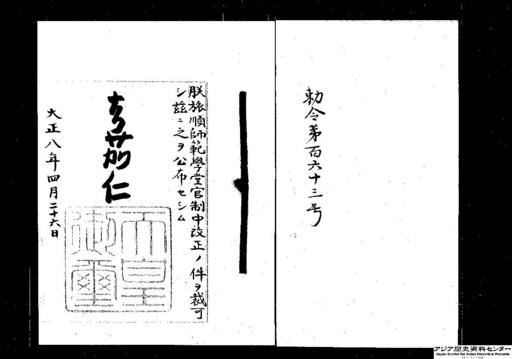 勅令第百六十三号
朕旅順師範學堂官制中改正ノ件ヲ裁可
シ茲ニ之ヲ公布セシム
嘉仁
天皇
御璽
大正八年四月二十六日
アジア歴史資料センター
Japan Center for Asian Historical Records